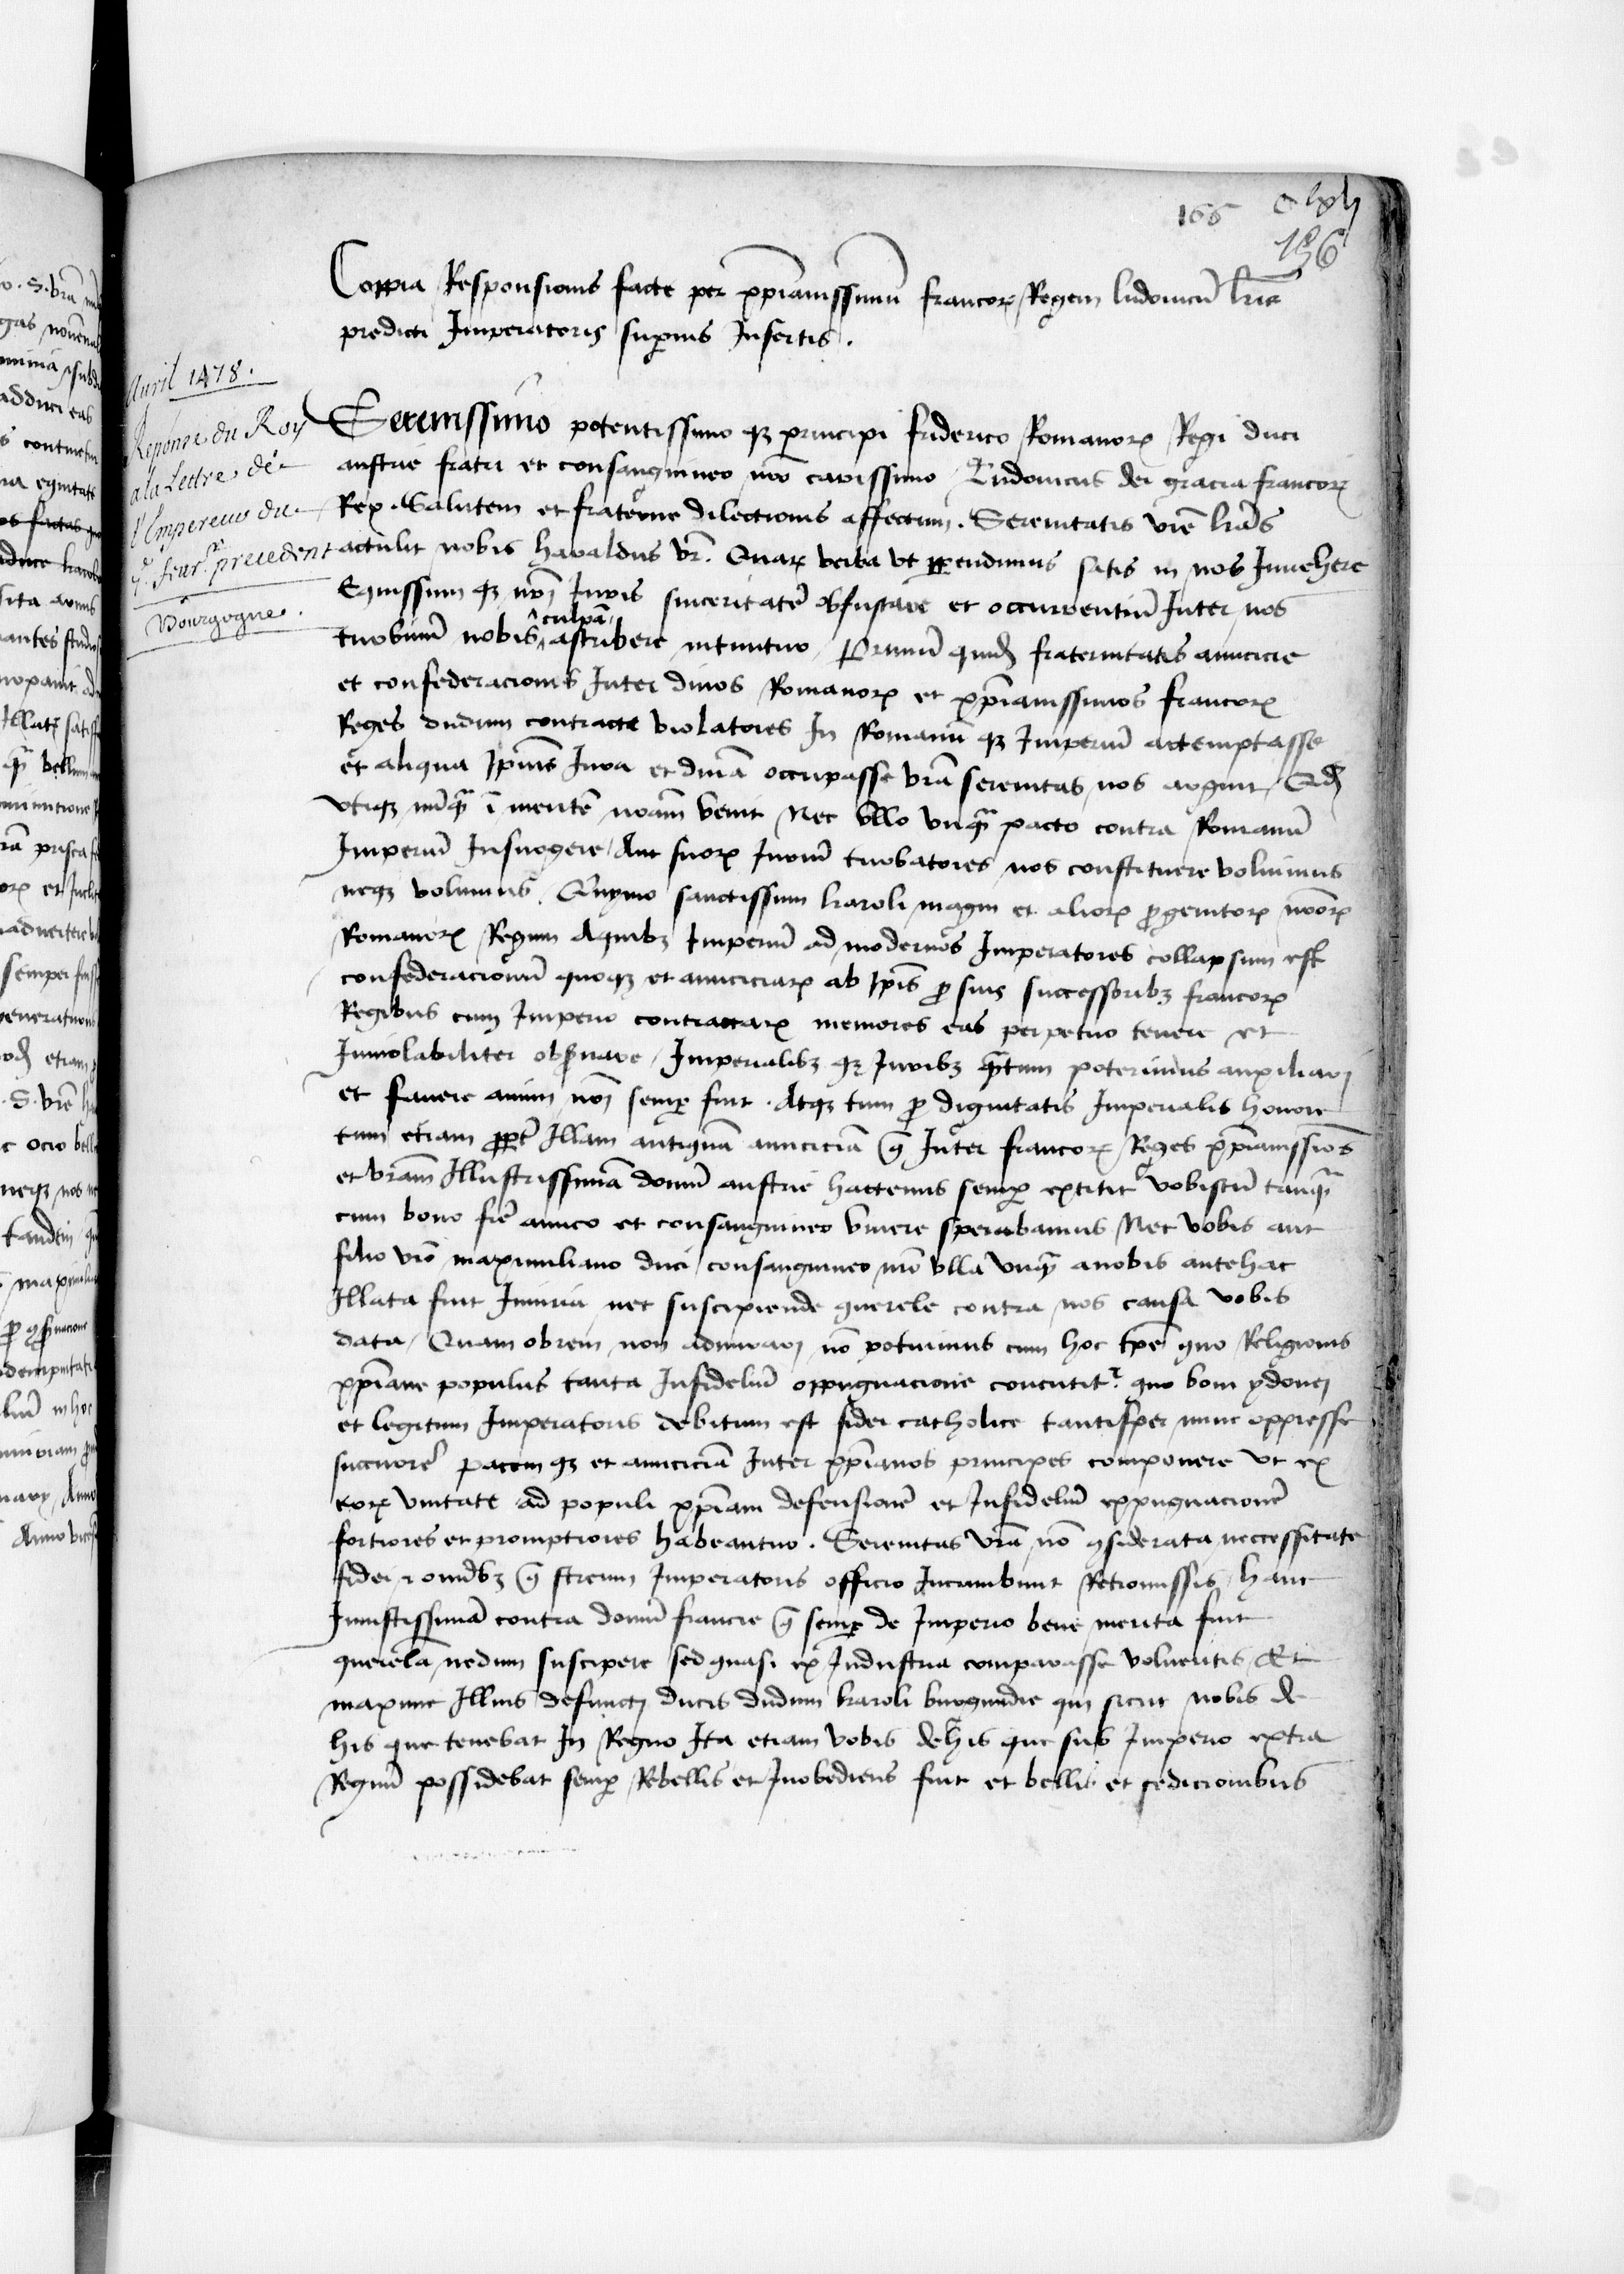 166 Clxvj
156
Coppia Responsionis facte per xp̄ianissimū francorꝝ Regem ludouicū lr̄is
predicti Imperatoris suꝑius Insertis .
Auril 1478.
Reponse du Roy
a la Lettre de
l'Empereur du
feur.r precedent
Bourgogne.
Serenissimo potentissimo qꝫ principi friderico Romanorꝝ Regi duci
austrie fratri et consanguineo nr̄o carissimo Ludouicus dei gracia francorꝝ
Rex . Salutem et fraterne dilectionis affectum . Serenitatis vr̄e lr̄as
attulit nobis haraldus vr̄. Quarꝝ verba vt ꝑpendimus satis in nos Inuehere
Equissim qꝫ nr̄i Iuris sinceritatē obfuscare et occurrentiū Inter nos
turbinū nobis culpā ascribere nituntur Primū quidē fraternitatis amicicie
et confederacionis Inter diuos Romanorꝝ et xp̄ianissimos francorꝝ
Reges dudum contracte violatores In Romanū qꝫ Imperiū attemptasse
et aliqua Ipsius Iura et diuā occupasse vr̄a serenitas nos arguit Qd̄
vtiqꝫ nūqꝫ ī mentē nr̄am venit Nec vllo vnqꝫ pacto contra Romanū
Imperiū Insurgere Aut suorꝝ Iuriū turbatores nos constituere voluimus
neqꝫ volumus . Quymo sanctissimi karoli magni et aliorꝝ ꝓgenitorꝝ nr̄orꝝ
Romanorꝝ Regum Aquibꝫ Imperiū ad modernos Imperatores collapsum est
confederacionū quoqꝫ et amiciciarꝝ ab Ip̄is ꝓ suis successoribꝫ francorꝝ
Regibus cum Imperio contractarꝝ memores eas perpetuo tenere et
Inuiolabiliter obseruare Imperialibꝫ qꝫ Iuribꝫ qꝫtum poterimus auxiliari
et fauere animi nr̄i semꝑ fuit . Atqꝫ tum ꝓ dignitatis Imperialis honore
tum etiam ꝓpt̄ Illam antiquā amiciciā q̄ Inter francorꝝ Reges xp̄ianissios
et vr̄am Illustrissimā domū austrie hactenus semꝑ extitit vobiscū tanqꝫ
cum bono fr̄e amico et consanguineo viuere sperabamus Nec vobis aut
filio vr̄o maximiliano duci consanguineo nr̄o vlla vnqꝫ anobis antehac
Illata fuit Iniuria nec suscipiende querele contra nos causa vobis
data Quam obrem non admirari nō potuimus cum hoc tp̄e quo Religionis
xp̄iane populus tanta Infideliū oppugnacione concutitr quo boni ydonei
et legitimi Imperatoris debitum est fidei catholice tantisper nunc oppresse
succurrē pacem qꝫ et amiciciā Inter xp̄ianos principes componere vt ex
eorꝝ vnitate ad populi xp̄iani defensionē et Infideliū expugnacionē
fortiores et promptiores habeantur . Serenitas vr̄a nō 9siderata neccessitate
fidei ⁊ om̄ibꝫ q̄ strenui Imperatoris officio Incumbunt Retromissis hanc
Iniustissimā contra domū francie q̄ semꝑ de Imperio bene merita fuit
querelā nedum suscipere sed quasi ex Industria comparasse volueritis Et
maxime Illius defuncti ducis dudum karoli burgundie qui sicut nobis de
his que tenebat In Regno Ita etiam vobis de his que sub Imperio extra
Regnū possidebat semꝑ Rebellis et Inobediens fuit et bellis et sedicionibus